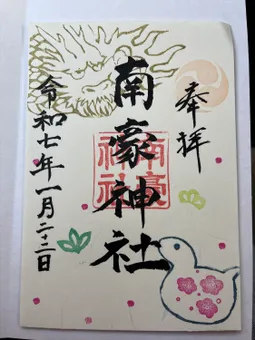 奉拝
南豪神社
令和七年一月二十二日
南豪
神社